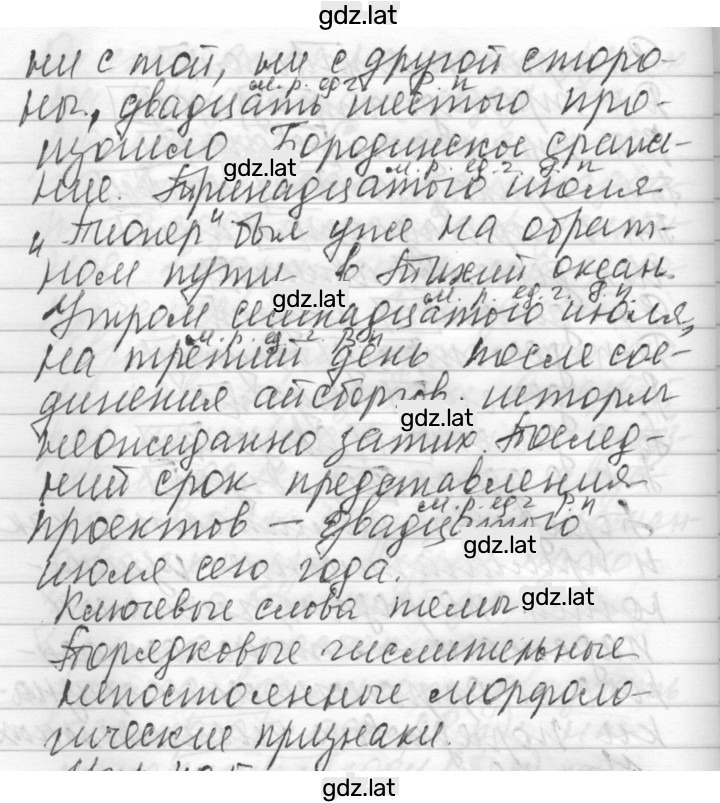 gdz.lat
ни с той, ни с другой сторо-
м. р. ед. ч. Р. п
ны, двадцать шестого про-
изошло Бородинское сраже-
gdz.lat
м. р. ед. ч. Р. п
ние. Тринадцатого июля
"Пионер" был уже на обрат-
ном пути в Тихий океан.
gdz.lat
м. р. ед. ч. Р. п.
Утром семнадцатого июля,
м. р. ед. ч. В. п
на третий день после сое-
динения айсбергов, шторм
gdz.lat
неожиданно затих. Послед-
ний срок представления
м. р. ед. ч. Р. п
проектов – двадцатого
gdz.lat
июля сего года.
Ключевые слова темы
gdz.lat
Порядковые числительные
непостоянные морфоло-
гические признаки.
gdz.lat